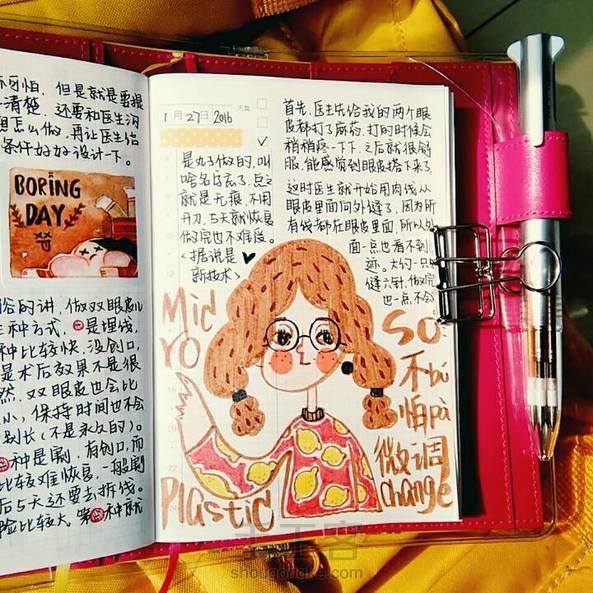 可怕，但是就是要提
清楚，还要和医生沟
怎么做，再让医生给
条件好好设计一下。
BORING
DAY.
俗的讲，做双眼皮
三种方式，①是埋线，
种比较快，没创口，
是术后效果不是很
然，双眼皮也会比
小，保持时间也不会
别长（不是永久的）。
种是割，有创口，而
比较难恢复，一般割
后5天还要去拆线。
险比较大。第③种就
1月27日2016
天气
是丸子做的，叫
啥名忘了，总之
就是无痕，不用
开刀，5天就恢复
做完也不难受。
据说是
新技术
首先，医生先给我的两个眼
皮都打了麻药，打的时候会
稍疼一下下，之后就很舒
服，能感觉到眼皮搭下来了，
这时医生就开始用肉线从
眼皮里面向外缝了，因为所
有线都在眼皮里面，所以外
面一点也看不到
迹。大约一只
缝六针，做完
也一点不会
Mic
ro
Plastic
SO:
不bú
怕pà
微调
change
手工客
shougongke.com